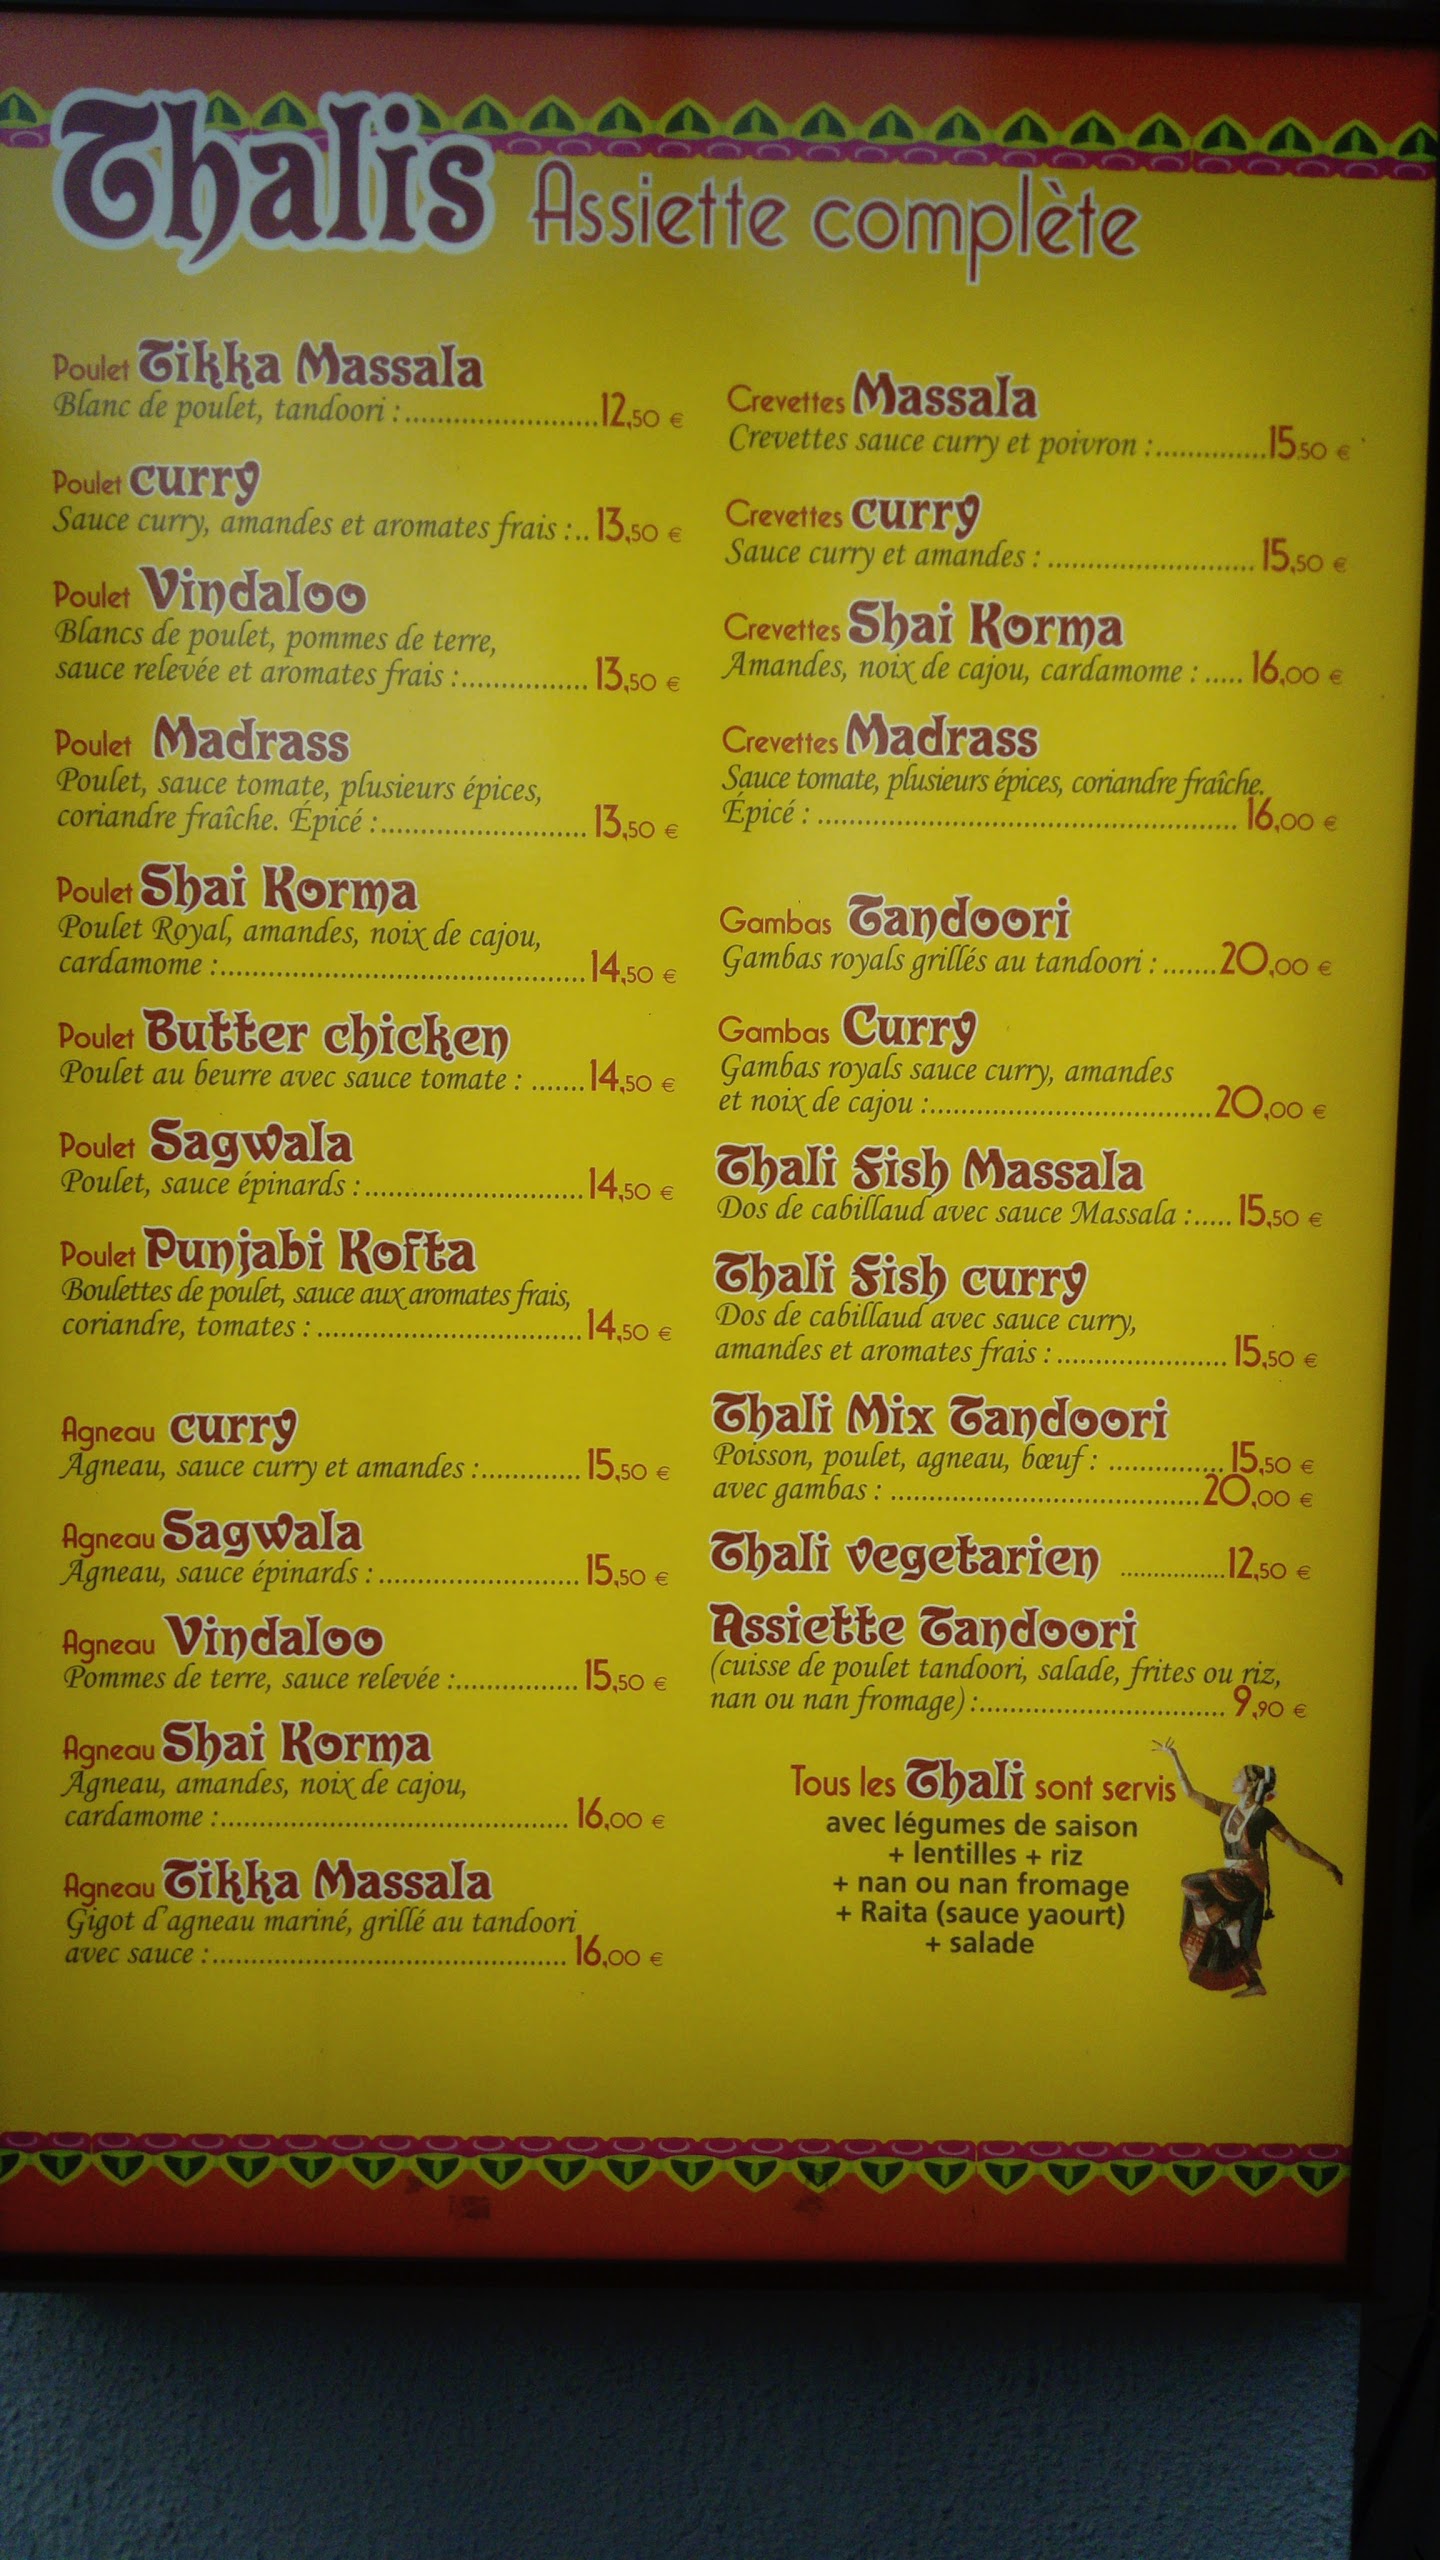 Thalis Assiette complète
Poulet Tikka Massala
Blanc de poulet, tandoori :........................12,50 €
Poulet curry
Sauce curry, amandes et aromates frais :.. 13,50 €
Poulet Vindaloo
Blancs de poulet, pommes de terre,
sauce relevée et aromates frais :................ 13,50 €
Poulet Madrass
Poulet, sauce tomate, plusieurs épices,
coriandre fraîche. Épicé :.......................... 13,50 €
Poulet Shai Korma
Poulet Royal, amandes, noix de cajou,
cardamome :.............................................. 14,50 €
Poulet Butter chicken
Poulet au beurre avec sauce tomate : ....... 14,50 €
Poulet Sagwala
Poulet, sauce épinards :............................ 14,50 €
Poulet Punjabi Kofta
Boulettes de poulet, sauce aux aromates frais,
coriandre, tomates : .................................. 14,50 €
Agneau curry
Agneau, sauce curry et amandes :............. 15,50 €
Agneau Sagwala
Agneau, sauce épinards : .......................... 15,50 €
Agneau Vindaloo
Pommes de terre, sauce relevée :................ 15,50 €
Agneau Shai Korma
Agneau, amandes, noix de cajou,
cardamome :............................................. 16,00 €
Agneau Tikka Massala
Gigot d'agneau mariné, grillé au tandoori
avec sauce :.............................................. 16,00 €
Crevettes Massala
Crevettes sauce curry et poivron :..............15,50 €
Crevettes curry
Sauce curry et amandes : .......................... 15,50 €
Crevettes Shai Korma
Amandes, noix de cajou, cardamome : ..... 16,00 €
Crevettes Madrass
Sauce tomate, plusieurs épices, coriandre fraîche.
Épicé : ...................................................... 16,00 €
Gambas Tandoori
Gambas royals grillés au tandoori : .......20,00 €
Gambas Curry
Gambas royals sauce curry, amandes
et noix de cajou :....................................20,00 €
Thali Fish Massala
Dos de cabillaud avec sauce Massala :..... 15,50 €
Thali Fish curry
Dos de cabillaud avec sauce curry,
amandes et aromates frais : ...................... 15,50 €
Thali Mix Tandoori
Poisson, poulet, agneau, bœuf : ...............15,50 €
avec gambas : ........................................20,00 €
Thali vegetarien ..............12,50 €
Assiette Tandoori
(cuisse de poulet tandoori, salade, frites ou riz,
nan ou nan fromage) :................................ 9,90 €
Tous les Thali sont servis
avec légumes de saison
+ lentilles + riz
+ nan ou nan fromage
+ Raita (sauce yaourt)
+ salade